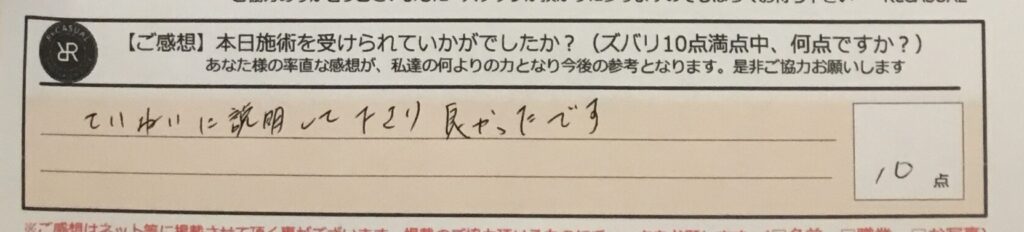 RECASUAL
【ご感想】本日施術を受けられていかがでしたか？（ズバリ10点満点中、何点ですか？）
あなた様の率直な感想が、私達の何よりの力となり今後の参考となります。是非ご協力お願いします
ていねいに説明して下さり 良かったです
10 点
※ご感想はネット等に掲載させて頂く事がございます。